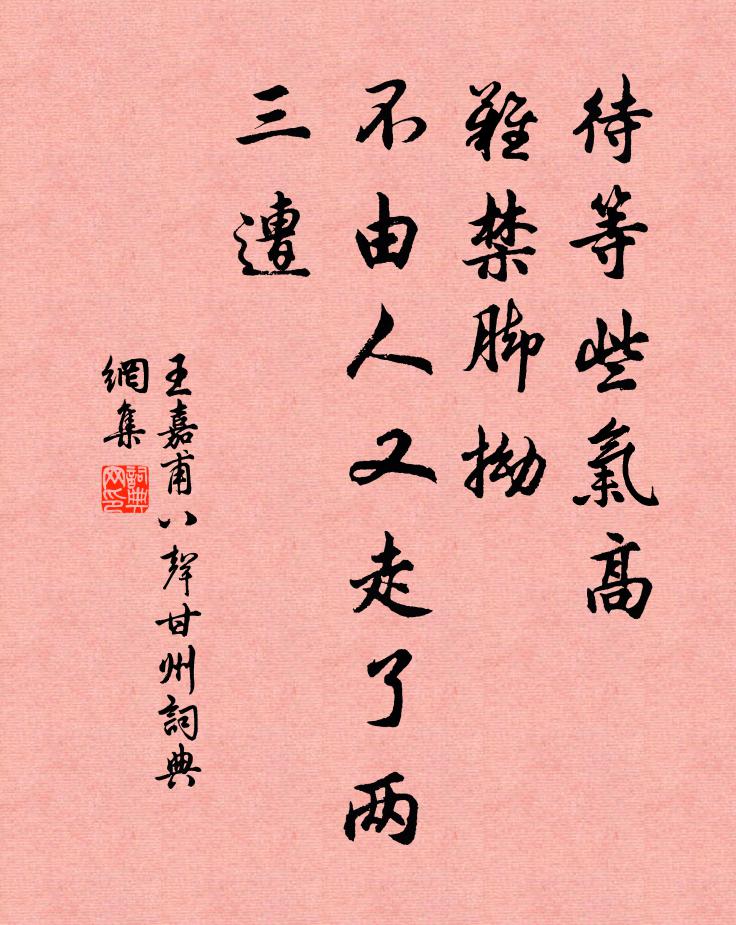 待等些氣高
難禁脚拗
不由人又走了两
三遭
王嘉甫八聲甘州詞典
網集
詞典網印